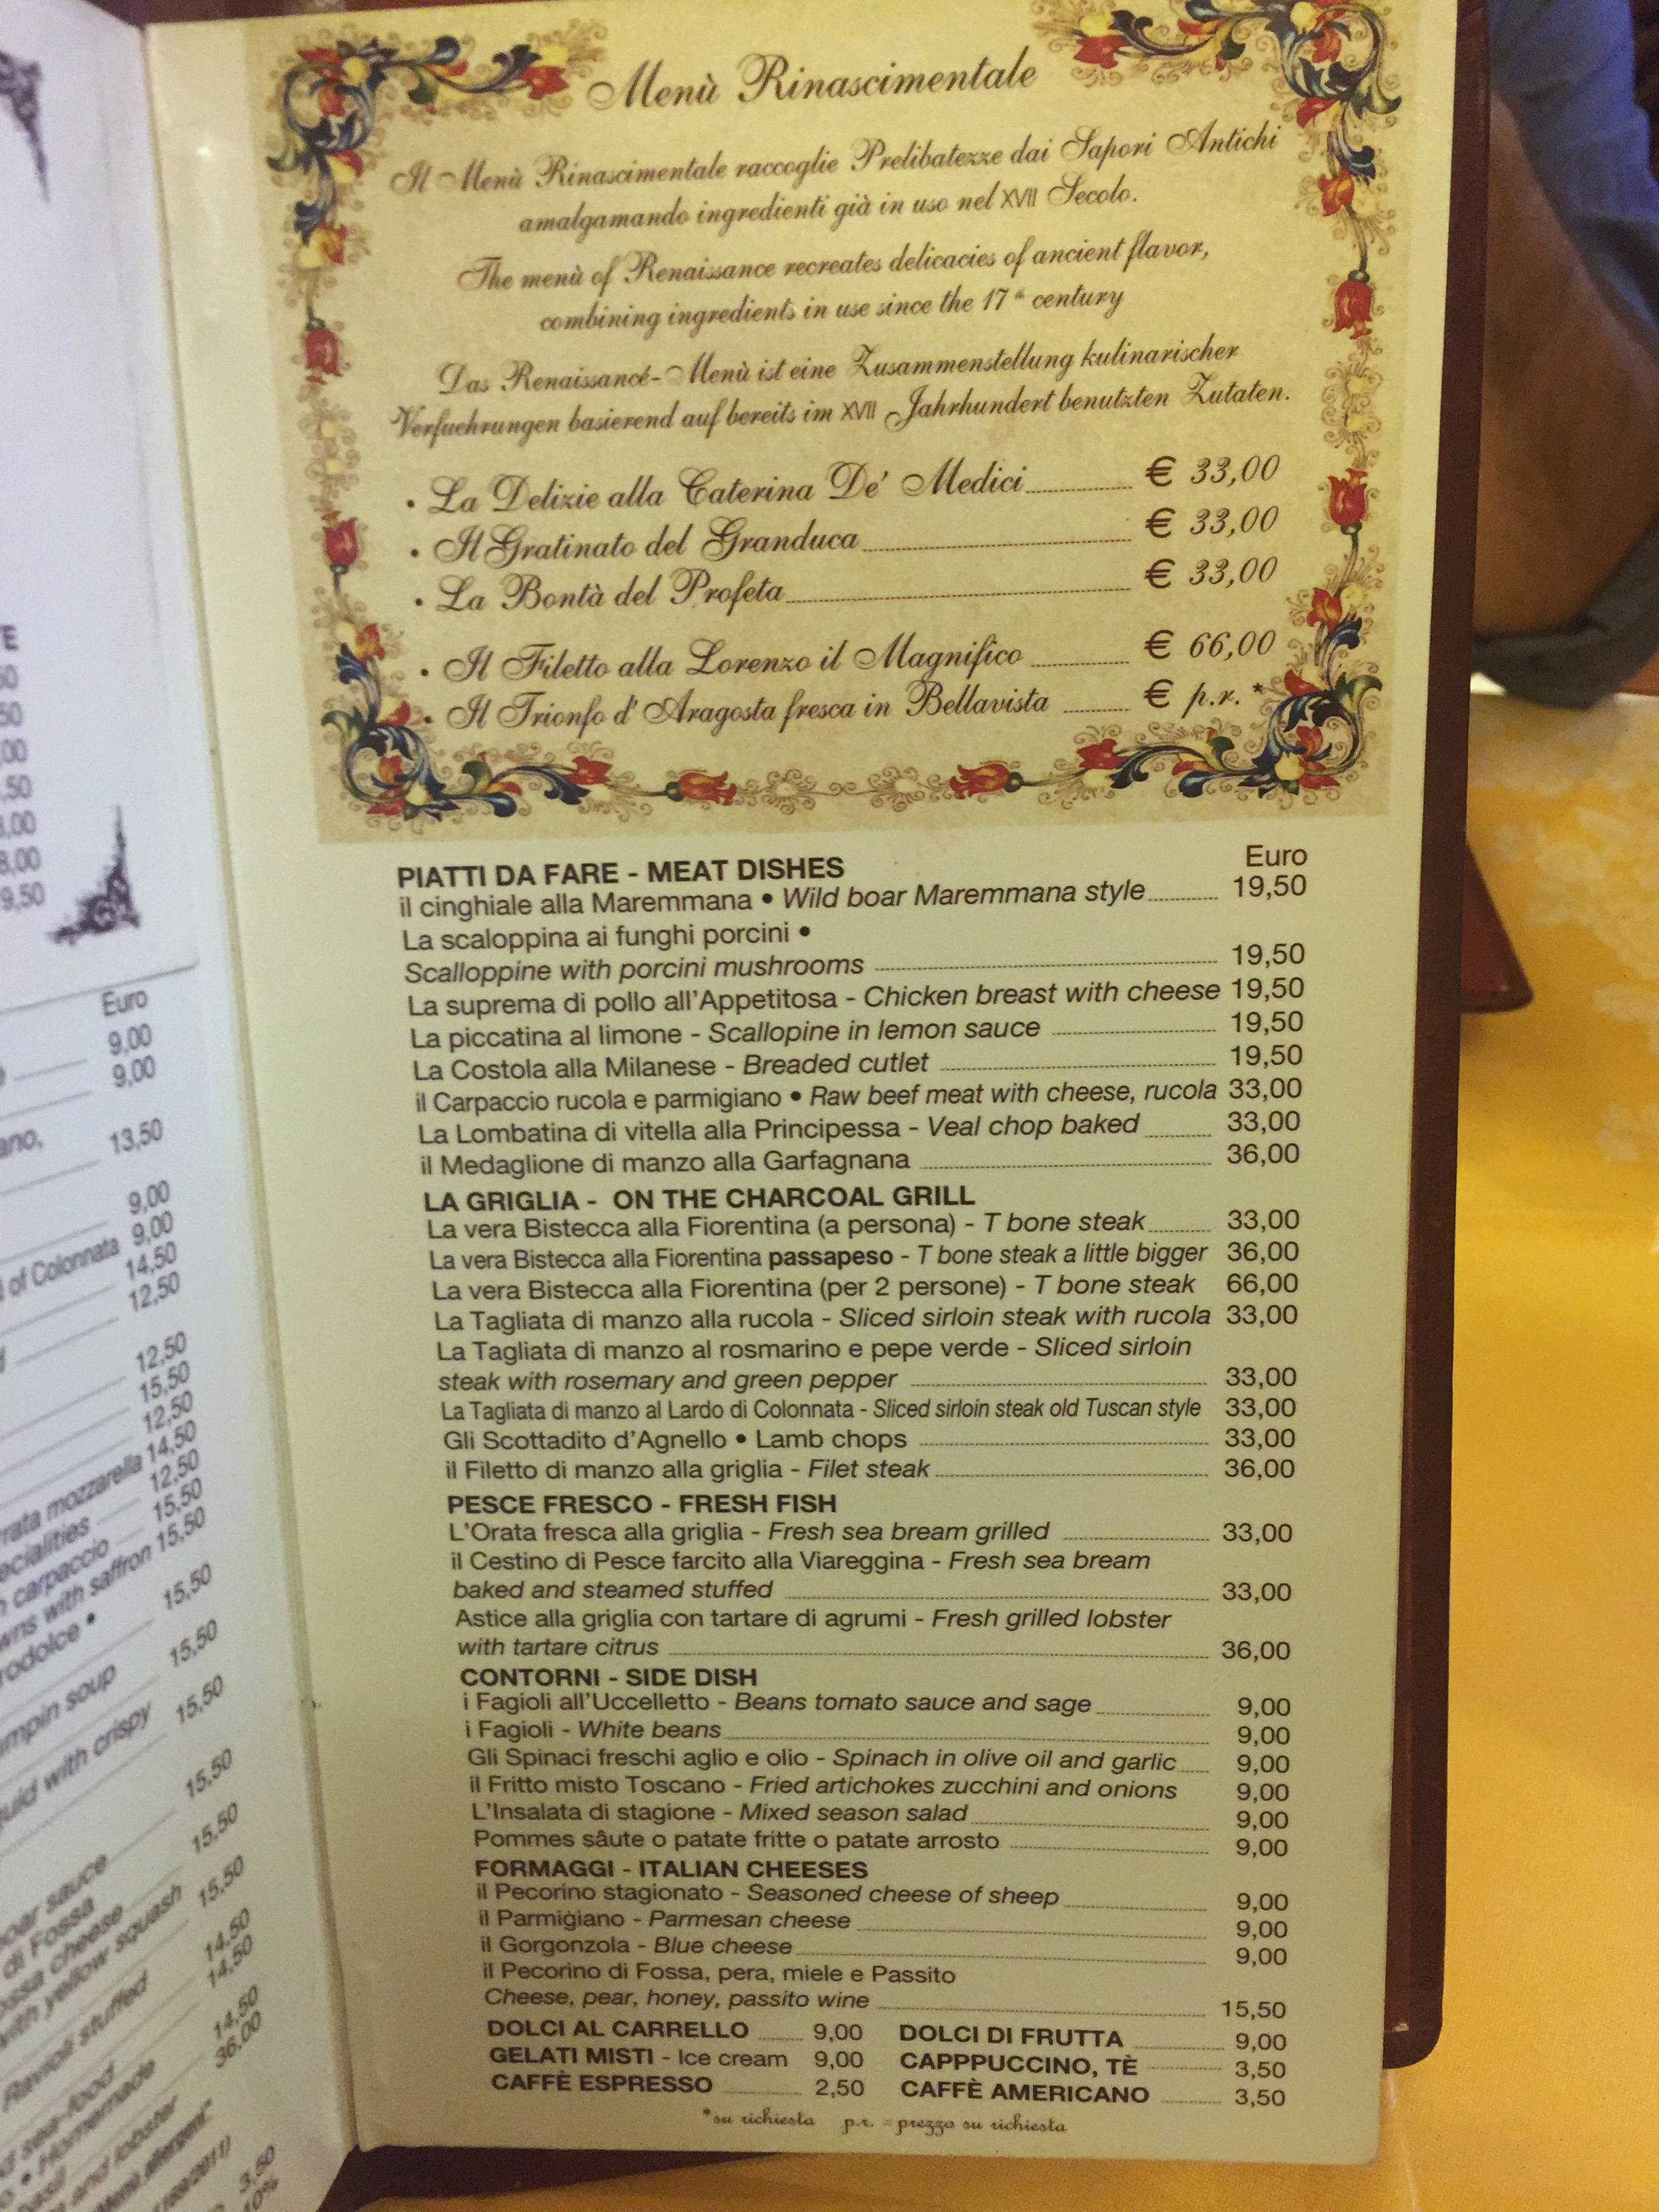 Menù Rinascimentale
Il Menù Rinascimentale raccoglie Prelibatezze dai Sapori Antichi
amalgamando ingredienti già in uso nel XVII Secolo.
The menù of Renaissance recreates delicacies of ancient flavor,
combining ingredients in use since the 17th century
Das Renaissancé-Menù ist eine Zusammenstellung kulinarischer
Verfuehrungen basierend auf bereits im XVII Jahrhundert benutzten Zutaten.
• La Delizie alla Caterina De' Medici € 33,00
• Il Gratinato del Granduca € 33,00
• La Bontà del Profeta € 33,00
• Il Filetto alla Lorenzo il Magnifico € 66,00
• Il Trionfo d'Aragosta fresca in Bellavista € p.r.*
Euro
PIATTI DA FARE - MEAT DISHES
il cinghiale alla Maremmana • Wild boar Maremmana style 19,50
La scaloppina ai funghi porcini •
Scalloppine with porcini mushrooms 19,50
La suprema di pollo all'Appetitosa - Chicken breast with cheese 19,50
La piccatina al limone - Scallopine in lemon sauce 19,50
La Costola alla Milanese - Breaded cutlet 19,50
il Carpaccio rucola e parmigiano • Raw beef meat with cheese, rucola 33,00
La Lombatina di vitella alla Principessa - Veal chop baked 33,00
il Medaglione di manzo alla Garfagnana 36,00
LA GRIGLIA - ON THE CHARCOAL GRILL
La vera Bistecca alla Fiorentina (a persona) - T bone steak 33,00
La vera Bistecca alla Fiorentina passapeso - T bone steak a little bigger 36,00
La vera Bistecca alla Fiorentina (per 2 persone) - T bone steak 66,00
La Tagliata di manzo alla rucola - Sliced sirloin steak with rucola 33,00
La Tagliata di manzo al rosmarino e pepe verde - Sliced sirloin
steak with rosemary and green pepper 33,00
La Tagliata di manzo al Lardo di Colonnata - Sliced sirloin steak old Tuscan style 33,00
Gli Scottadito d'Agnello • Lamb chops 33,00
il Filetto di manzo alla griglia - Filet steak 36,00
PESCE FRESCO - FRESH FISH
L'Orata fresca alla griglia - Fresh sea bream grilled 33,00
il Cestino di Pesce farcito alla Viareggina - Fresh sea bream
baked and steamed stuffed 33,00
Astice alla griglia con tartare di agrumi - Fresh grilled lobster
with tartare citrus 36,00
CONTORNI - SIDE DISH
i Fagioli all'Uccelletto - Beans tomato sauce and sage 9,00
i Fagioli - White beans 9,00
Gli Spinaci freschi aglio e olio - Spinach in olive oil and garlic 9,00
il Fritto misto Toscano - Fried artichokes zucchini and onions 9,00
L'Insalata di stagione - Mixed season salad 9,00
Pommes sâute o patate fritte o patate arrosto 9,00
FORMAGGI - ITALIAN CHEESES
il Pecorino stagionato - Seasoned cheese of sheep 9,00
il Parmigiano - Parmesan cheese 9,00
il Gorgonzola - Blue cheese 9,00
il Pecorino di Fossa, pera, miele e Passito
Cheese, pear, honey, passito wine 15,50
DOLCI AL CARRELLO 9,00 DOLCI DI FRUTTA 9,00
GELATI MISTI - Ice cream 9,00 CAPPPUCCINO, TÈ 3,50
CAFFÈ ESPRESSO 2,50 CAFFÈ AMERICANO 3,50
*su richiesta p.r. = prezzo su richiesta
Euro
9,00
9,00
13,50
9,00
9,00
of Colonnata 14,50
12,50
12,50
15,50
12,50
mozzarella 14,50
12,50
carpaccio 15,50
with saffron 15,50
15,50
soup 15,50
with crispy 15,50
15,50
sauce 15,50
di Fossa
cheese 15,50
with yellow squash
14,50
Ravioli stuffed 14,50
sea-food 14,50
• Homemade 36,00
and lobster
3,50
10%